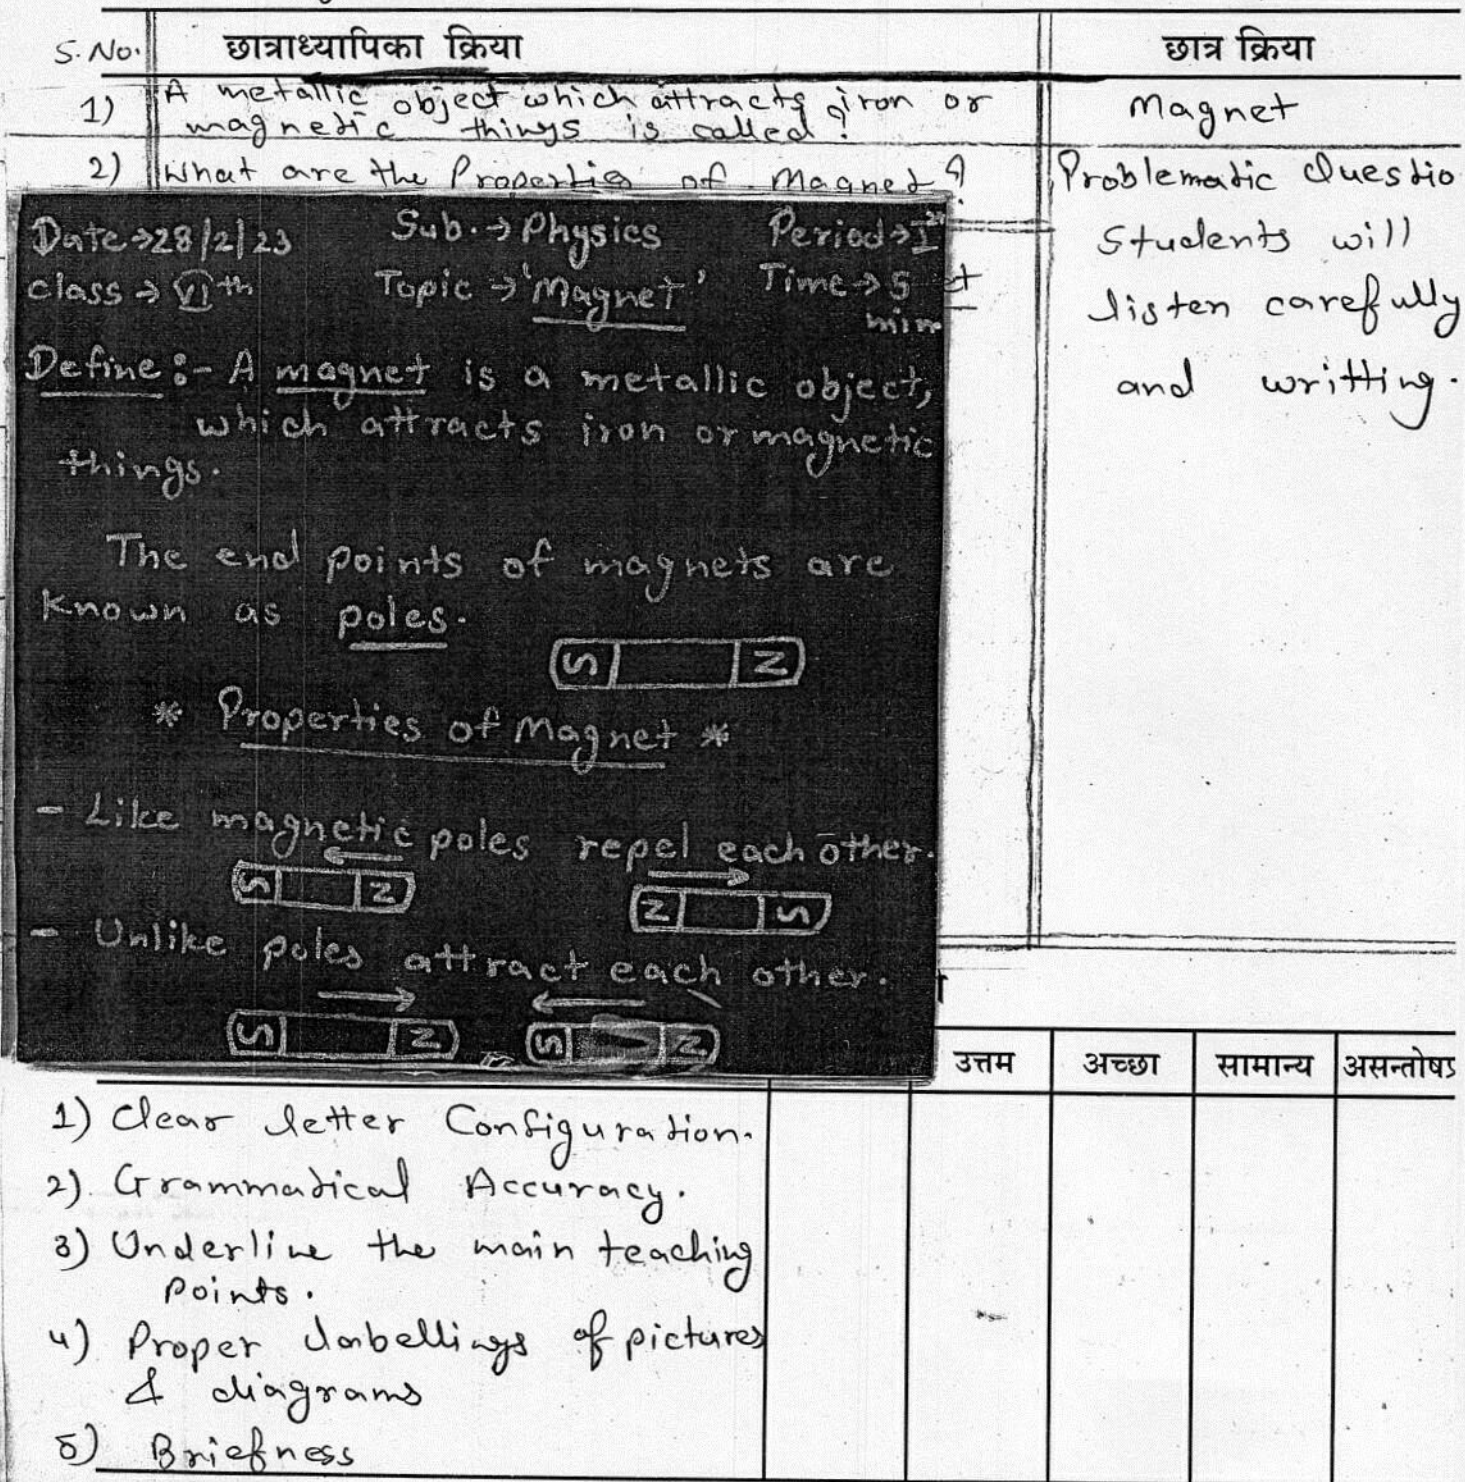 S.No. छात्राध्यापिका क्रिया छात्र क्रिया
1) A metallic object which attracts iron or
magnetic things is called? Magnet
2) What are the Properties of Magnet? Problematic Questio
Students will
listen carefully
and writting.
Date→28/2/23 Sub.→Physics Period→Ist
Class→VIth Topic→'Magnet' Time→5
min
et
Define:- A magnet is a metallic object,
which attracts iron or magnetic
things.
The end points of magnets are
Known as poles.
S N
* Properties of Magnet *
- Like magnetic poles repel each other.
S N N S
- Unlike poles attract each other.
S N S N
उत्तम अच्छा सामान्य असन्तोष
1) Clear letter Configuration.
2) Grammatical Accuracy.
3) Underline the main teaching
Points.
4) Proper Labellings of pictures
& diagrams
5) Briefness